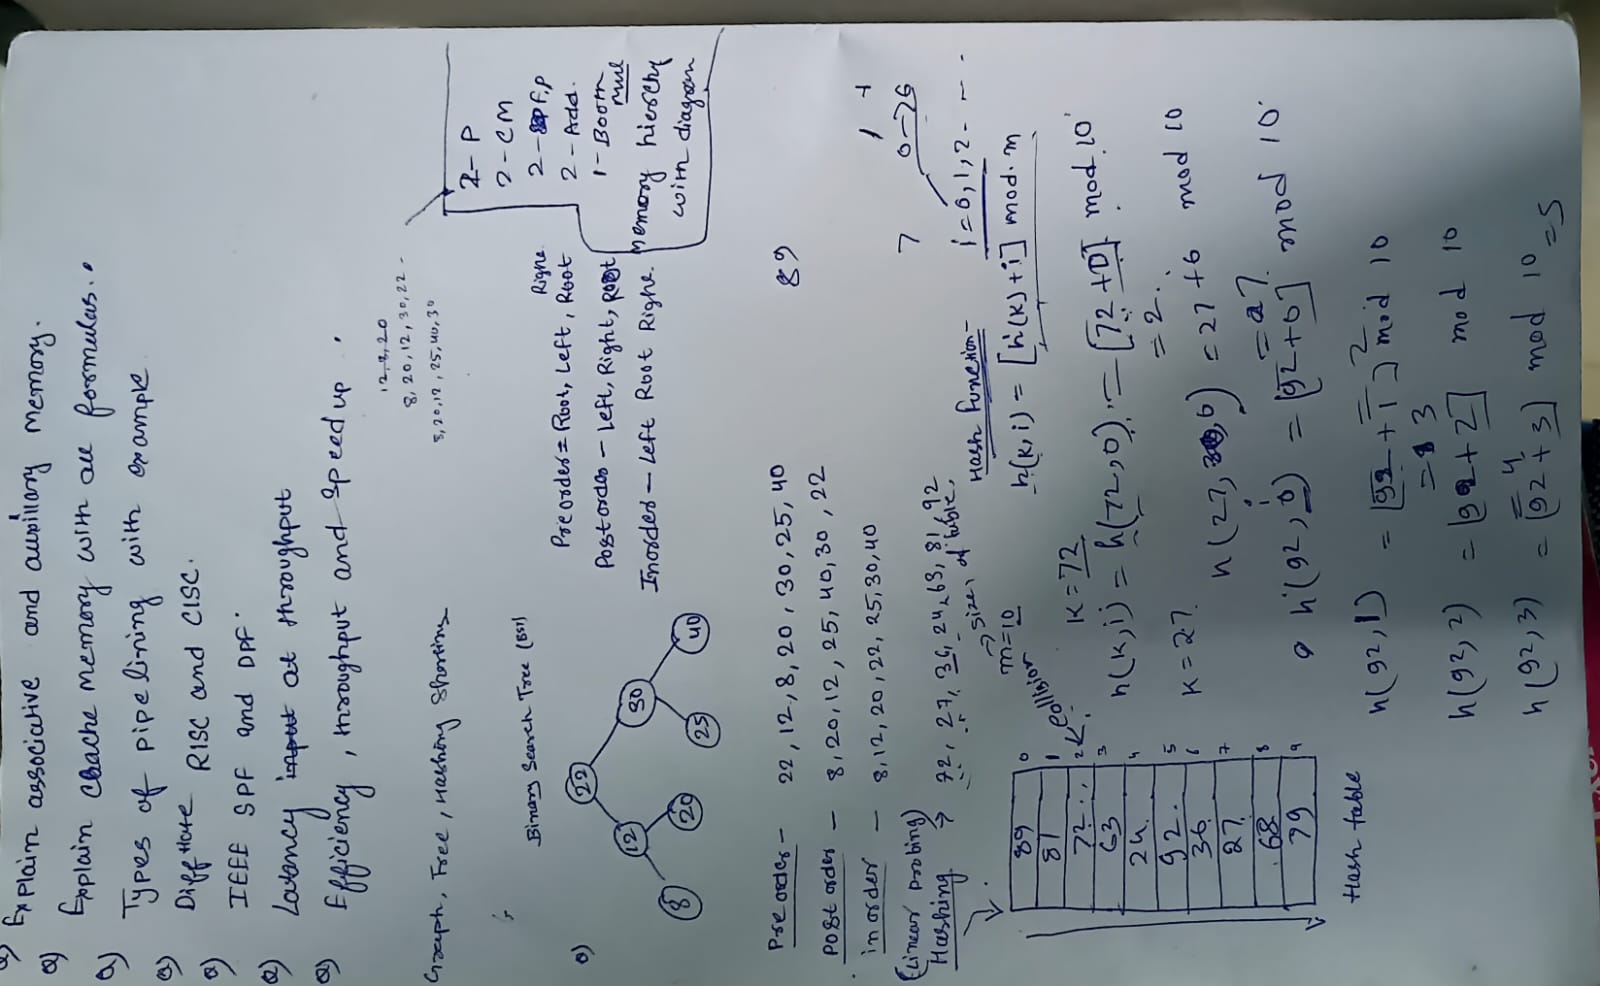 Q) Explain associative and auxillary memory.
Q) Explain cache memory with all formulas.
Q) Types of pipelining with example
Q) Diff RISC and CISC.
Q) IEEE SPF and DPF.
Q) Latency input at throughput
Q) Efficiency, throughput and speed up.
12, 8, 20
8, 20, 12, 30, 22
8, 20, 12, 25, 40, 30
Graph, Tree, Hashing
2 - P
2 - CM
2 - F.P
2 - Add.
1 - Booth
mul
memory
with diagram
Binary Search Tree (BST)
Q)
22
12 30
8 20 25 40
Right
Preorder = Root, Left, Root
Postorder - Left, Right, Root
Inorder - Left Root Right.
Pre order - 22, 12, 8, 20, 30, 25, 40
89
Post order - 8, 20, 12, 25, 40, 30, 22
in order - 8, 12, 20, 22, 25, 30, 40
(Linear probing)
7 0-26
Hashing → 72, 27, 36, 24, 63, 81, 92
→ size of table.
m=10
Hash Function -
i=0,1,2 - - -
h(k, i) = [h'(k) + i] mod. m
collision
89 0
81 1
72 2
63 3
24 4
92 5
36 6
27 7
68 8
79 9
Hash table
K = 72
h(k, i) = h(72, 0) = [72 + 0] mod 10
= 2.
K = 27
h(27, 0) = 27 + 0 mod 10
= 7.
i
h'(92, 0) = [92 + 0] mod 10
= 2
h(92, 1) = [92 + 1] mod 10
= 3
h(92, 2) = [92 + 2] mod 10
= 4
h(92, 3) = [92 + 3] mod 10 = 5